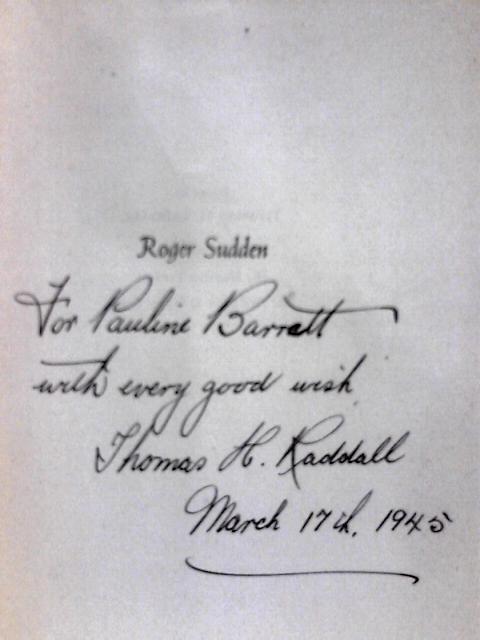 Roger Sudden
For Pauline Barrett
with every good wish
Thomas H. Raddall
March 17th, 1945